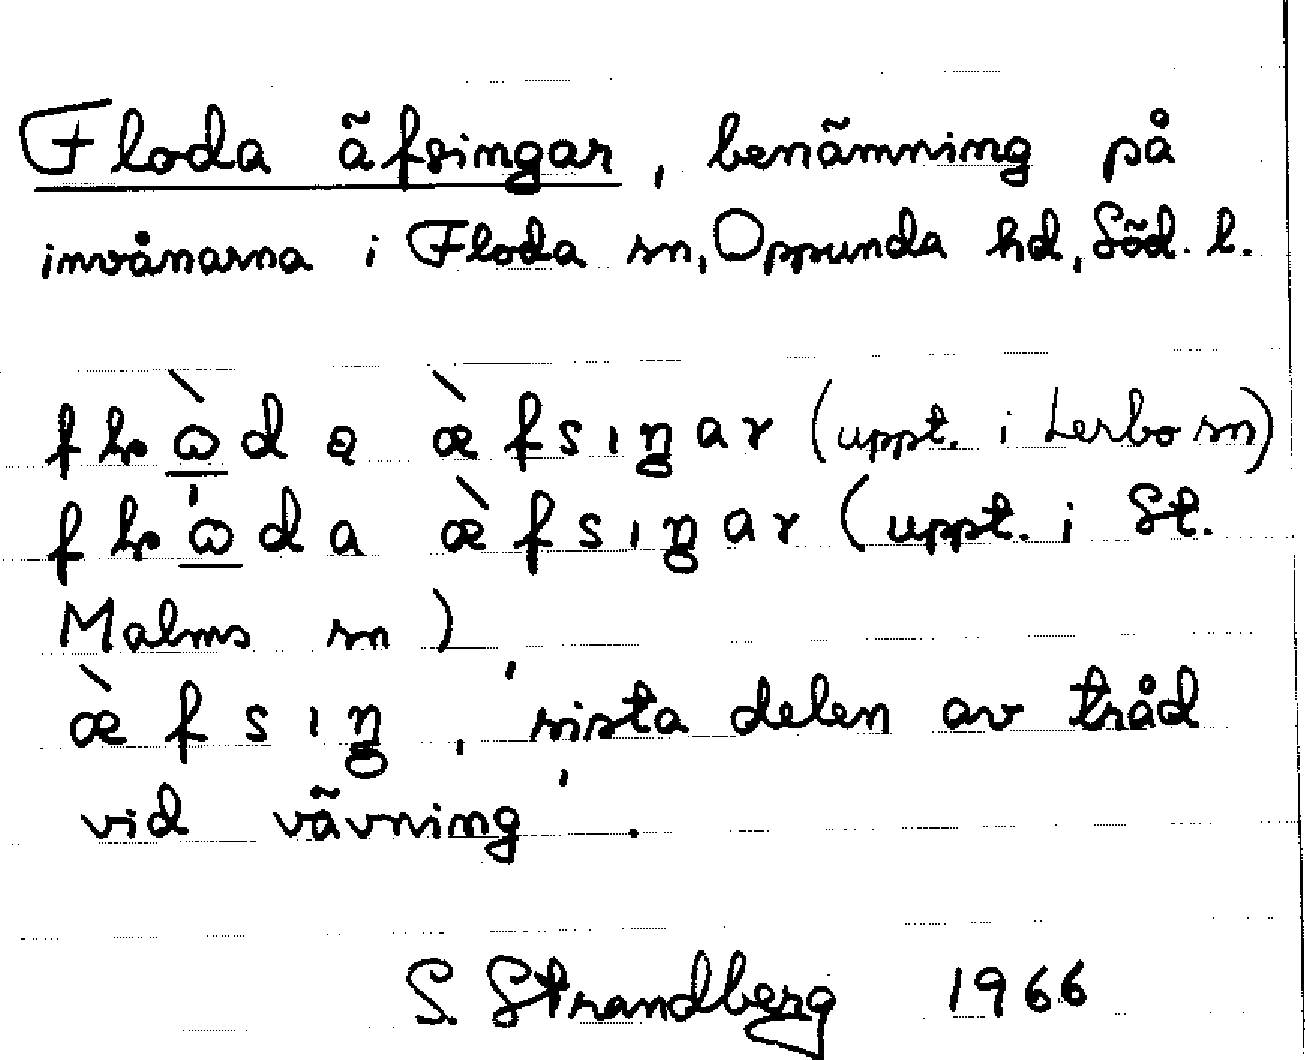 Floda äfsingar, benämning på
invånarna i Floda sn, Oppunda hd, Söd. l.
(uppt. i Lerbo sn)
(uppt. i St.
Malms sn)
æ̀fsıŋ, 'sista delen av tråd
vid vävning'.
S. Strandberg 1966